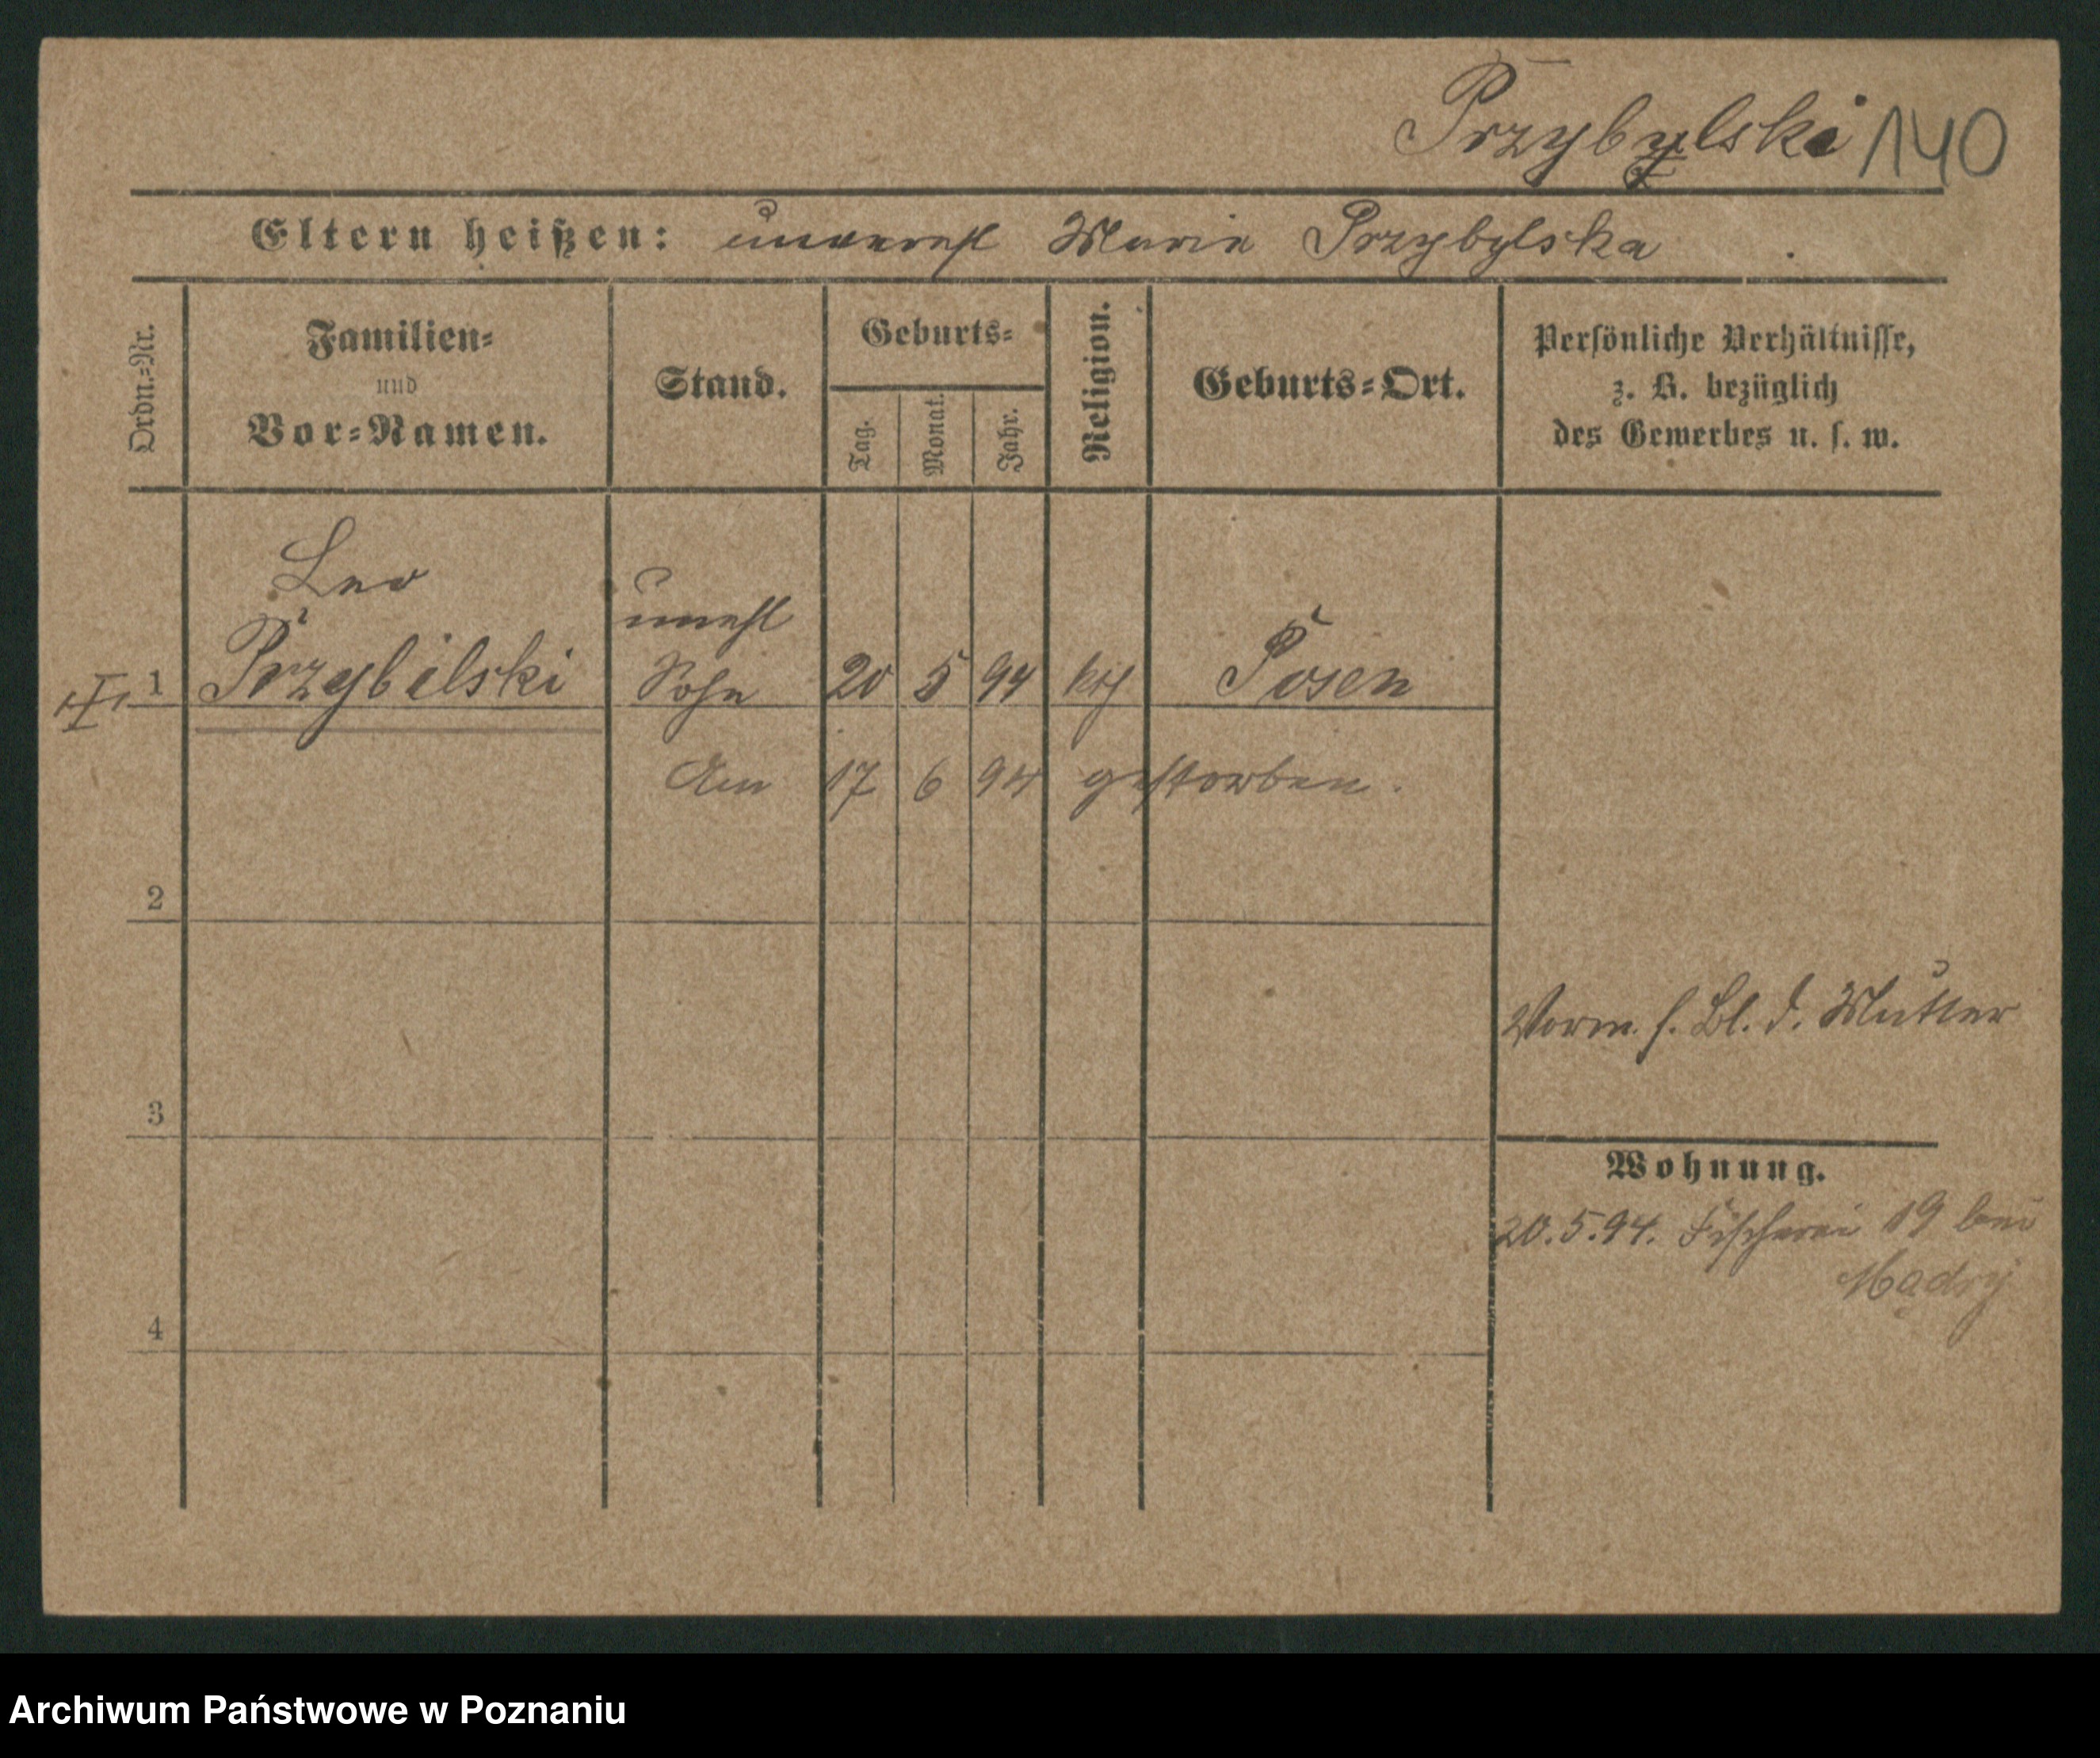 Przybylski 140
Eltern heißen: unverehl Marie Przybylska
Ordn.=Nr.
Familien=
und
Vor=Namen.
Stand.
Geburts=
Tag.
Monat.
Jahr.
Religion.
Geburts=Ort.
Persönliche Verhältnisse,
z. B. bezüglich
des Gewerbes u. s. w.
Leo
unehl
1 Przybilski Sohn 20 5 94 kth Posen
Am 17 6 94 gestorben.
2
Vorm. s. Bl. d. Mutter
3
Wohnung.
20.5.94. Fischerei 19 bei
Mądry
4
Archiwum Państwowe w Poznaniu